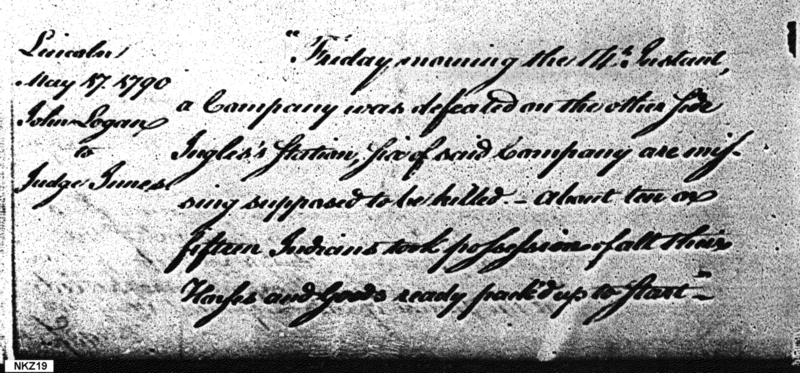 Lincoln
May 17. 1790
John Logan
to
Judge Innes
"Friday morning the 14th. Instant,
a Company was defeated on the other side
Ingles's Station, Six of said Company are mis-
sing supposed to be killed. – About ten or
fifteen Indians took possession of all their
Horses and Goods ready pack'd up to Start"–
NKZ19